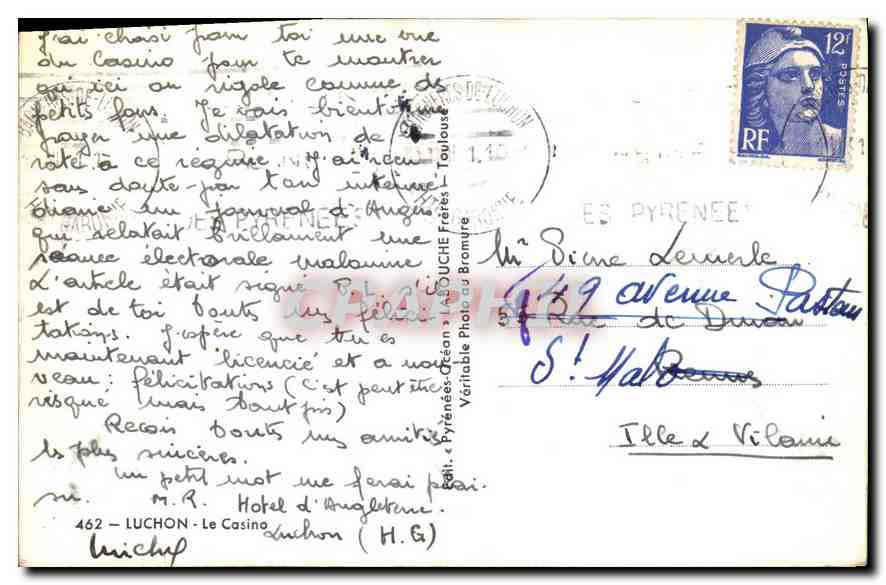 J'ai choisi pour toi une vue
du Casino pour te montrer
qu'ici on rigole comme des
petits fous. Je vais bientôt me
payer une dilatation de
rate à ce régime. J'ai reçu
sans doute par ton intermé
diaire un journal d'Angers
qui relatait brillamment une
séance électorale malouine
L'article était signé P.L. s'il
est de toi toutes mes félici
tations. J'espère que tu es
maintenant licencié et a nou
veau : félicitations (c'est peut être
risqué mais tant pis)
Reçois toutes mes amitiés
les plus sincères.
Un petit mot me ferai plai.
sir. M.R. Hotel d'Angleterre
Luchon (H.G)
462 — LUCHON - Le Casino
Michel
Edit. « Pyrénées-Océan » LABOUCHE Frères — Toulouse
Véritable Photo au Bromure
12F
POSTES
RF
BAGNERES-DE-LUCHON
HTE GARONNE
DES PYRENEES
Mr Pierre Lemerle
49 avenue Pasteur
Rue de Dinan
St Malo
Rennes
Ille & Vilaine
CPAPHIL